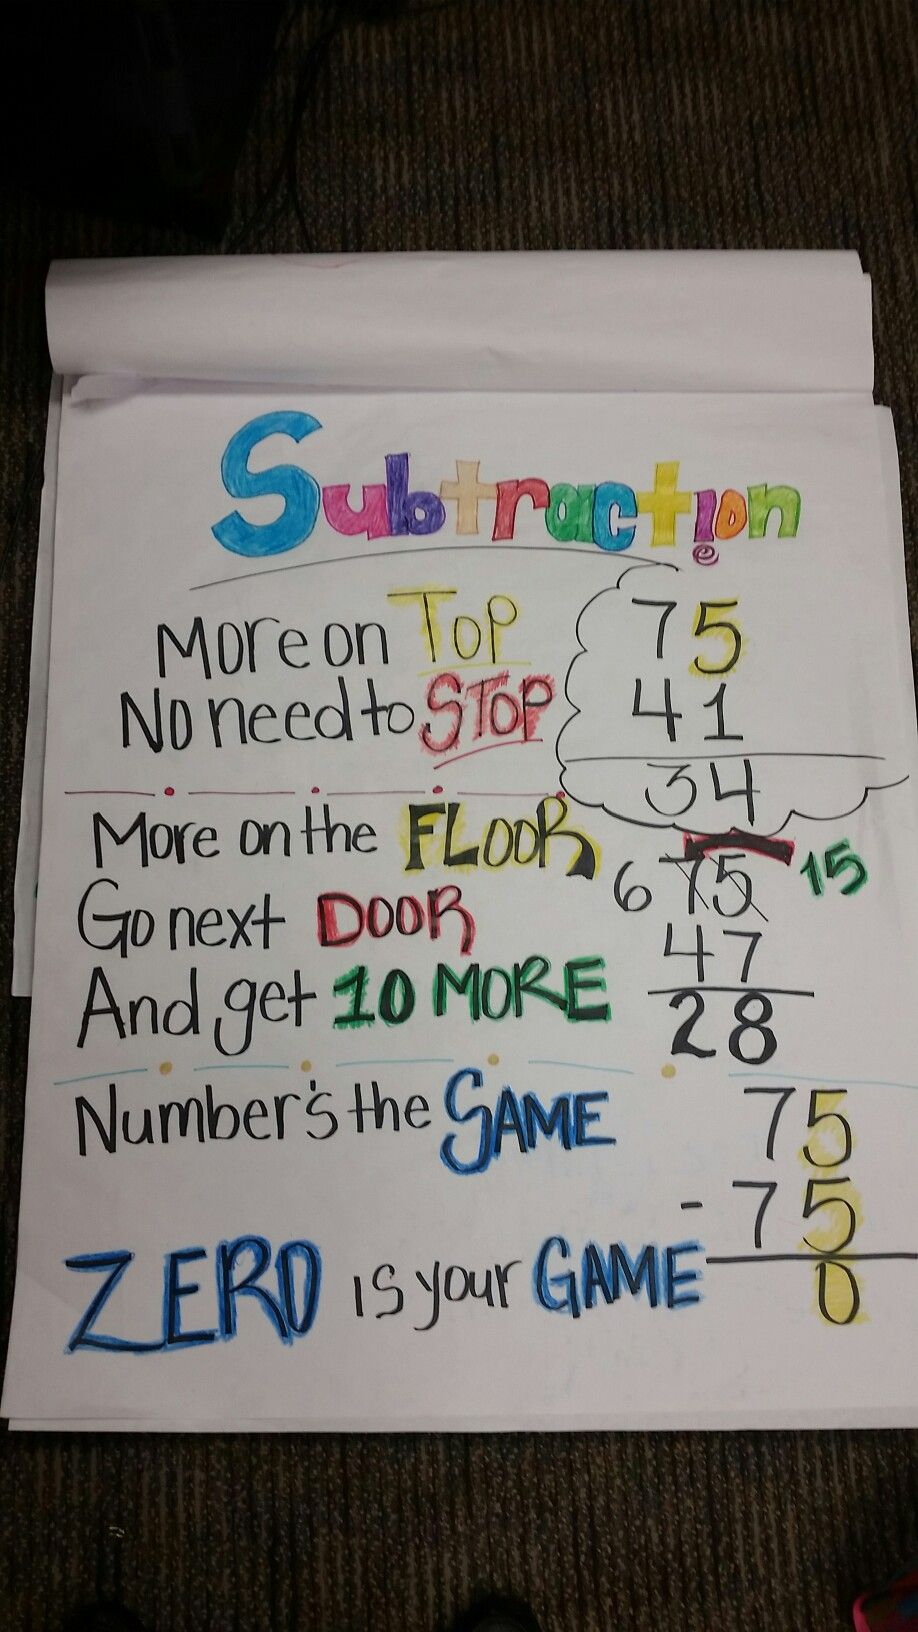 Subtraction
More on TOP
No need to STOP
75
41
34
More on the FLOOR
Go next DOOR
And get 10 MORE
6 75 15
47
28
Number's the SAME
ZERO is your GAME
75
- 75
0